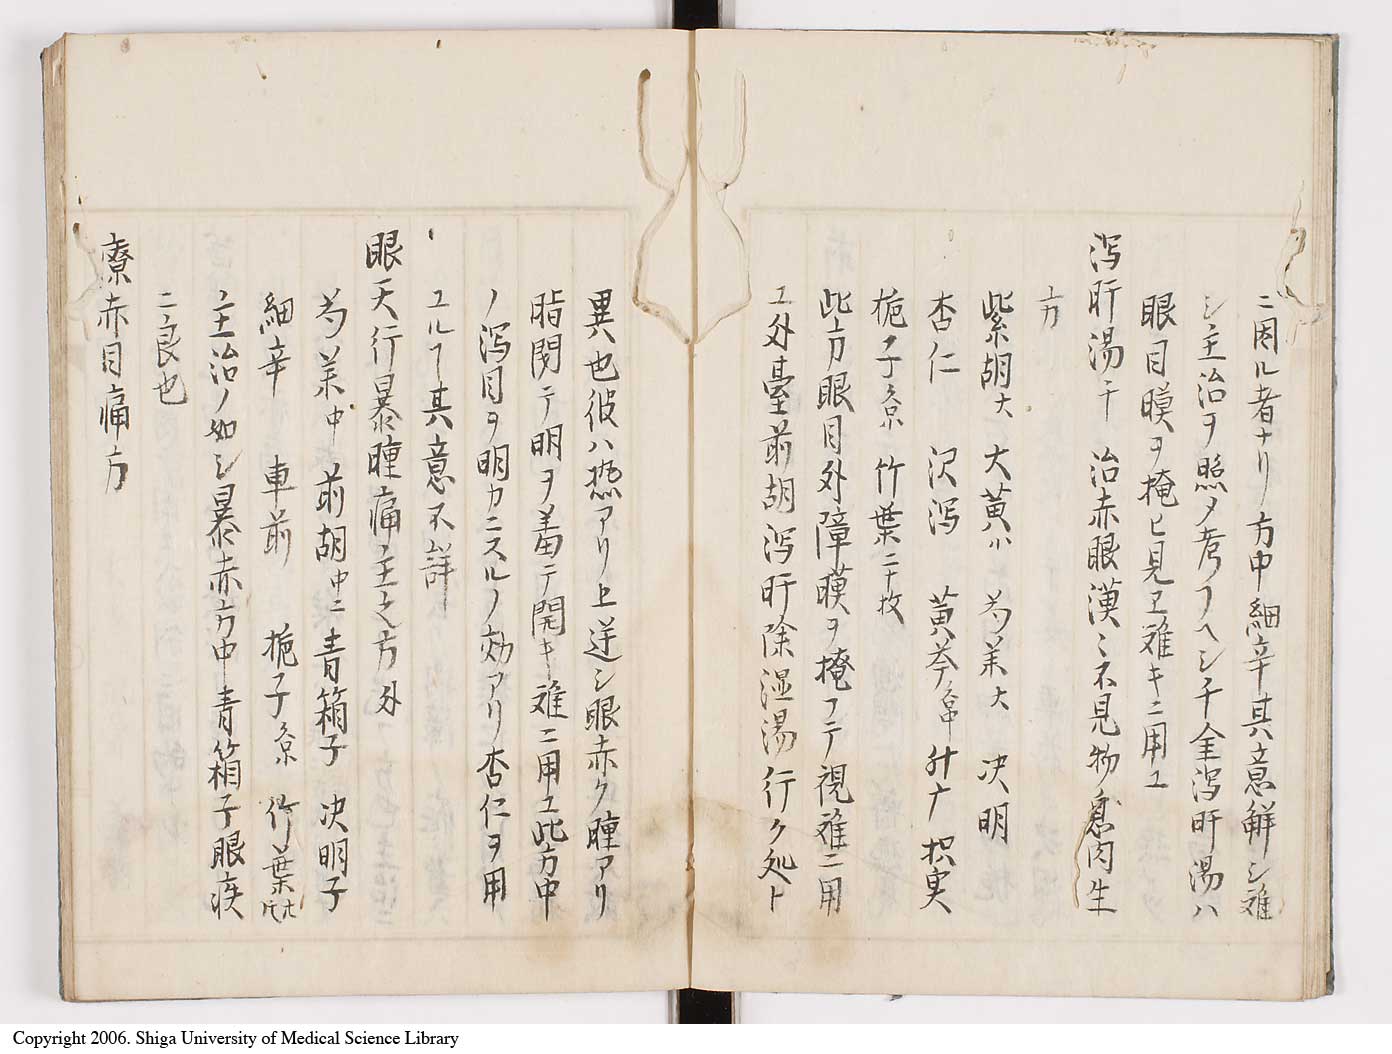 ニ因ル者ナリ方中細辛其意解シ难
シ主治ヲ照メ考フヘシ千金泻肝湯ハ
眼目瞙ヲ掩ヒ見ヱ难キニ用ユ
泻肝湯千 治赤眼漠ミ不見物息肉生
方
紫胡大 大黄小 芍薬大 决明
杏仁 沢泻 黄芩中 升大 枳実
梔子 竹葉二十枚
此方眼目外障瞙ヲ掩フテ視难ニ用
ユ外臺前胡泻肝除湿湯行ク処ト
異也彼ハ热アリ上逆シ眼赤ク瞳アリ
此方中
ノ泻目ヲ明カニスルノ効アリ杏仁ヲ用
ユル丁其意不詳
眼天行暴瞳痛主之方外
芍薬中 前胡中 青箱子 决明子
細辛 車前 梔子 竹葉
主治ノ如シ暴赤方中青箱子眼疾
ニ良也
療赤目痛方
Copyright 2006. Shiga University of Medical Science Library